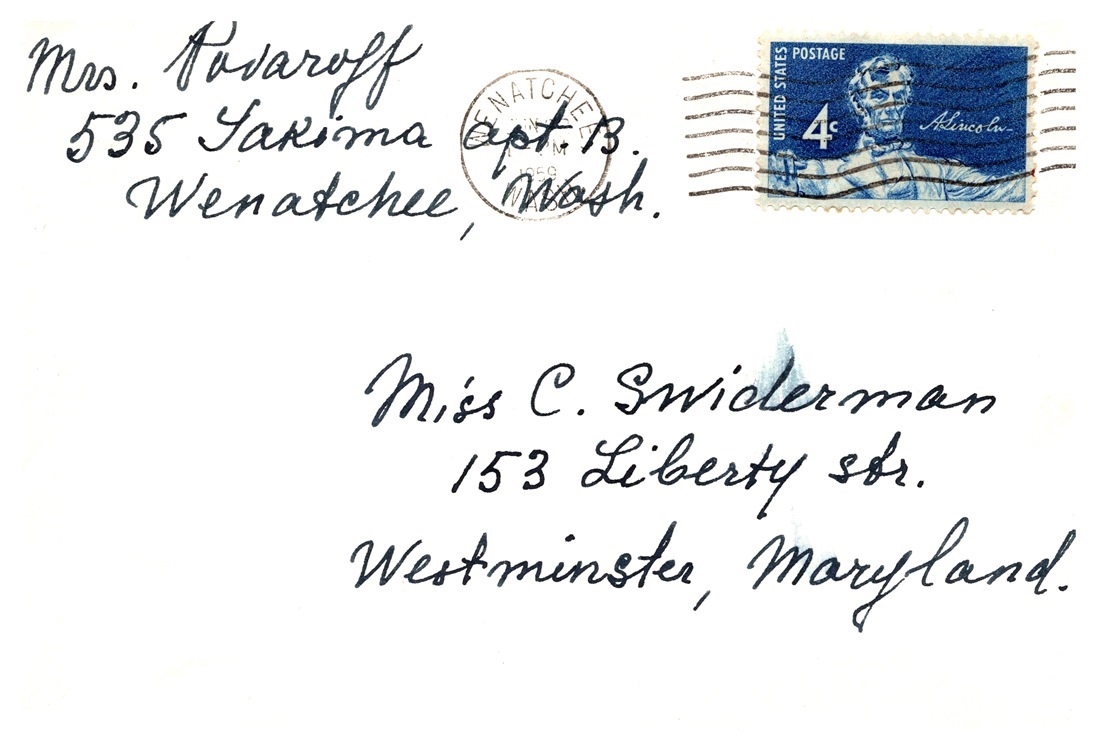 Mrs. Povaroff
535 Yakima apt. B.
Wenatchee, Wash.
WENATCHEE
1959
WASH
UNITED STATES POSTAGE
4c
A. Lincoln
Miss C. Swiderman
153 Liberty str.
Westminster, Maryland.